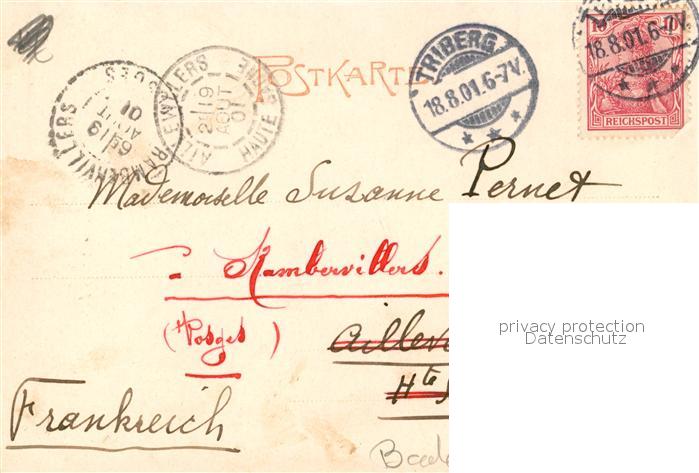 POSTKARTE
TRIBERG
18.8.01.6-7V.
18.8.01.6-7V.
10
REICHSPOST
AILLEVILLERS
2E 19
AOUT
01
HAUTE SAONE
RAMBERVILLERS
VOSGES
6E 19
AOUT
01
Mademoiselle Suzanne Pernet
à Rambervillers.
(Vosges)
Aillev
Hte S
Frankreich
Bade
privacy protection
Datenschutz